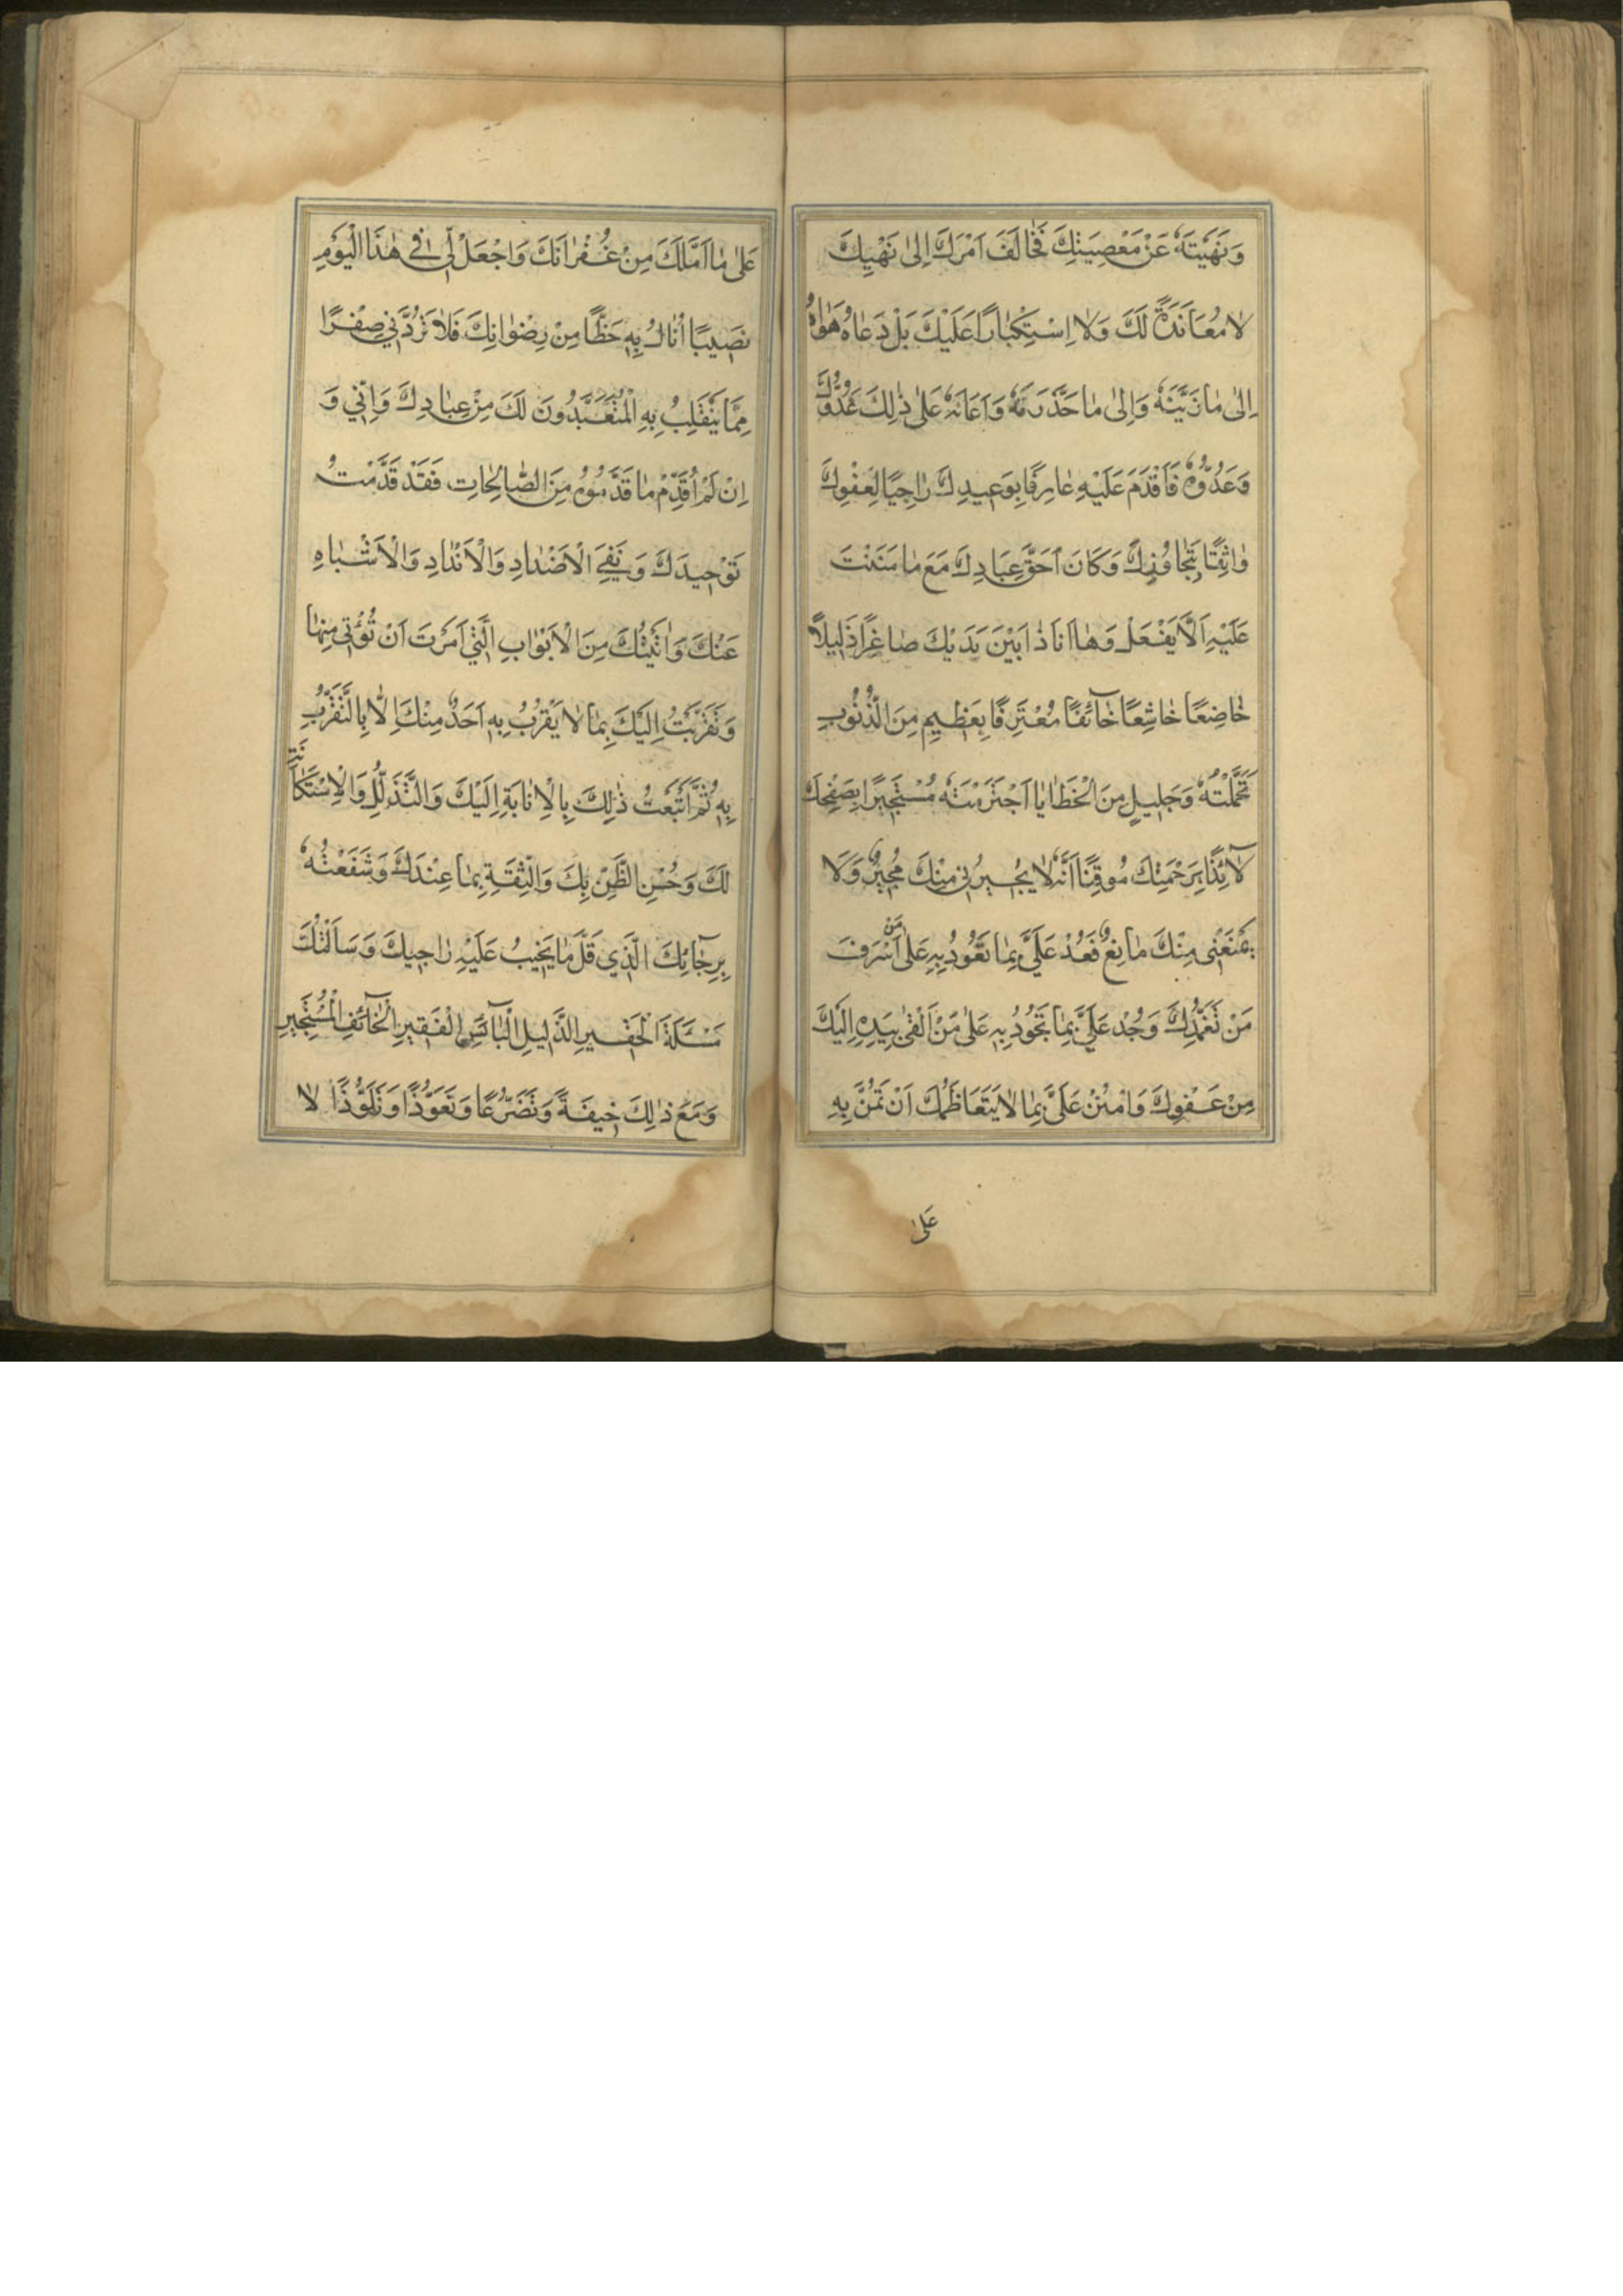 وَنَهَيْتَهُ عَنْ مَعْصِيَتِكَ فَخٰالَفَ اَمْرَكَ اِلىٰ نَهْيِكَ
لاٰ مُعٰانَدَةً لَكَ وَلاٰ اِسْتِكْبٰارًا عَلَيْكَ بَلْ دَعٰاهُ هَوٰاهُ
اِلىٰ مٰا زَيَّنْتَهُ وَاِلىٰ مٰا حَذَّرْتَهُ وَاَعٰانَهُ عَلىٰ ذٰلِكَ عَدُوُّكَ
وَعَدُوُّهُ فَاَقْدَمَ عَلَيْهِ عٰارِفًا بِوَعِيدِكَ رٰاجِيًا لِعَفْوِكَ
وٰاثِقًا بِتَجٰاوُزِكَ وَكٰانَ اَحَقَّ عِبٰادِكَ مَعَ مٰا مَنَنْتَ
عَلَيْهِ اَلاَّ يَفْعَلَ وَهٰا اَنَا ذٰا بَيْنَ يَدَيْكَ صٰاغِرًا ذَلِيلاً
خٰاضِعًا خٰاشِعًا خٰآئِفًا مُعْتَرِفًا بِعَظِيمٍ مِنَ الذُّنُوبِ
تَحَمَّلْتُهُ وَجَلِيلٍ مِنَ الْخَطٰايٰا اجْتَرَمْتُهُ مُسْتَجِيرًا بِصَفْحِكَ
لاٰئِذًا بِرَحْمَتِكَ مُوقِنًا اَنَّهُ لاٰ يُجِيرُنِي مِنْكَ مُجِيرٌ وَلاٰ
يَمْنَعُنِي مِنْكَ مٰانِعٌ فَعُدْ عَلَيَّ بِمٰا تَعُودُ بِهِ عَلىٰ مَنْ اَسْرَفَ
مَنْ تَغَمُّدِكَ وَجُدْ عَلَيَّ بِمٰا تَجُودُ بِهِ عَلىٰ مَنْ اَلْقىٰ بِيَدِهِ اِلَيْكَ
مِنْ عَفْوِكَ وَامْنُنْ عَلَيَّ بِمٰا لاٰ يَتَعٰاظَمُكَ اَنْ تَمُنَّ بِهِ
عَلىٰ
عَلىٰ مٰا اَمَّلَكَ مِنْ غُفْرٰانِكَ وَاجْعَلْ لِي فِي هٰذَا الْيَوْمِ
نَصِيبًا اَنٰالُ بِهِ حَظًّا مِنْ رِضْوٰانِكَ فَلاٰ تَرُدَّنِي صِفْرًا
مِمّٰا يَنْقَلِبُ بِهِ الْمُتَعَبِّدُونَ لَكَ مِنْ عِبٰادِكَ وَاِنِّي وَ
اِنْ لَمْ اُقَدِّمْ مٰا قَدَّمُوهُ مِنَ الصّٰالِحٰاتِ فَقَدْ قَدَّمْتُ
تَوْحِيدَكَ وَنَفْيَ الْاَضْدٰادِ وَالْاَنْدٰادِ وَالْاَشْبٰاهِ
عَنْكَ وَاَتَيْتُكَ مِنَ الْاَبْوٰابِ الَّتِي اَمَرْتَ اَنْ تُؤْتىٰ مِنْهٰا
وَتَقَرَّبْتُ اِلَيْكَ بِمٰا لاٰ يَقْرُبُ بِهِ اَحَدٌ مِنْكَ اِلاّٰ بِالتَّقَرُّبِ
بِهِ ثُمَّ اَتْبَعْتُ ذٰلِكَ بِالْاِنٰابَةِ اِلَيْكَ وَالتَّذَلُّلِ وَالْاِسْتِكٰانَةِ
لَكَ وَحُسْنِ الظَّنِّ بِكَ وَالثِّقَةِ بِمٰا عِنْدَكَ وَشَفَعْتُهُ
بِرَجٰآئِكَ الَّذِي قَلَّ مٰا يَخِيبُ عَلَيْهِ رٰاجِيكَ وَسَاَلْتُكَ
مَسْئَلَةَ الْحَقِيرِ الذَّلِيلِ الْبٰآئِسِ الْفَقِيرِ الْخٰآئِفِ الْمُسْتَجِيرِ
وَمَعَ ذٰلِكَ خِيفَةً وَتَضَرُّعًا وَتَعَوُّذًا وَتَلَوُّذًا لاٰ